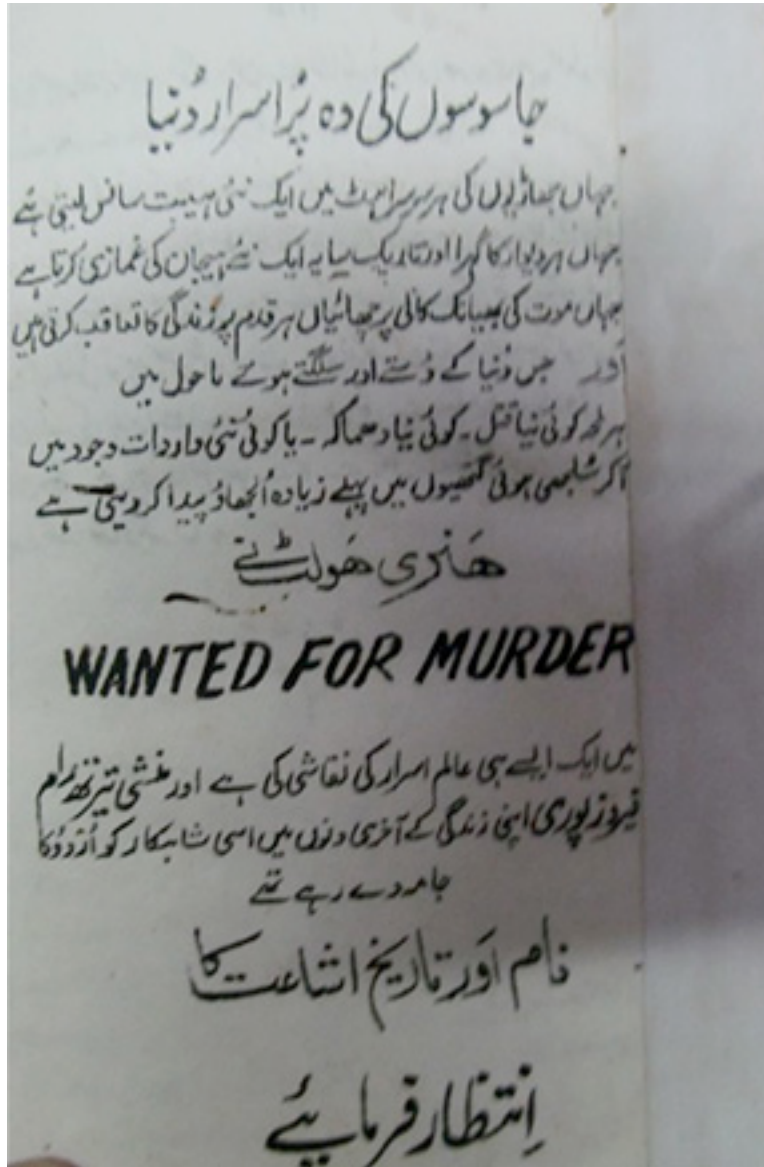 جاسوسوں کی وہ پُراسرار دُنیا
جہاں جھاڑیوں کی ہر سرسراہٹ میں ایک نئی ہیبت سانس لیتی ہے
جہاں ہر دیوار کا گہرا اور تاریک سایہ ایک نئے ہیجان کی غمازی کرتا ہے
جہاں موت کی بھیانک کالی پرچھائیاں ہر قدم پر زندگی کا تعاقب کرتی ہیں
اور جس دُنیا کے ڈستے اور سُلگتے ہوئے ماحول میں
ہر لمحہ کوئی نیا قتل ۔ کوئی نیا دھماکہ ۔ یا کوئی نئی واردات وجود میں
آکر سُلجھی ہوئی گتھیوں میں پہلے زیادہ اُلجھاؤ پیدا کر دیتی ہے
ھنری ھولٹ نے
WANTED FOR MURDER
میں ایک ایسے ہی عالم اسرار کی نقاشی کی ہے اور منشی تیرتھ رام
فیروزپوری اپنی زندگی کے آخری دنوں میں اسی شاہکار کو اُردو کا
جامہ دے رہے تھے
نام اور تاریخ اشاعت کا
اِنتظار فرمایئے